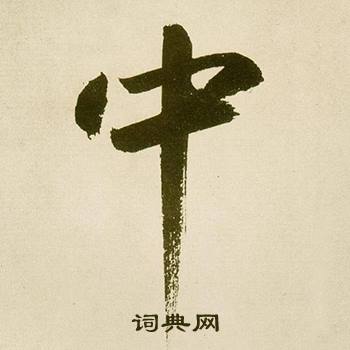 中
词典网